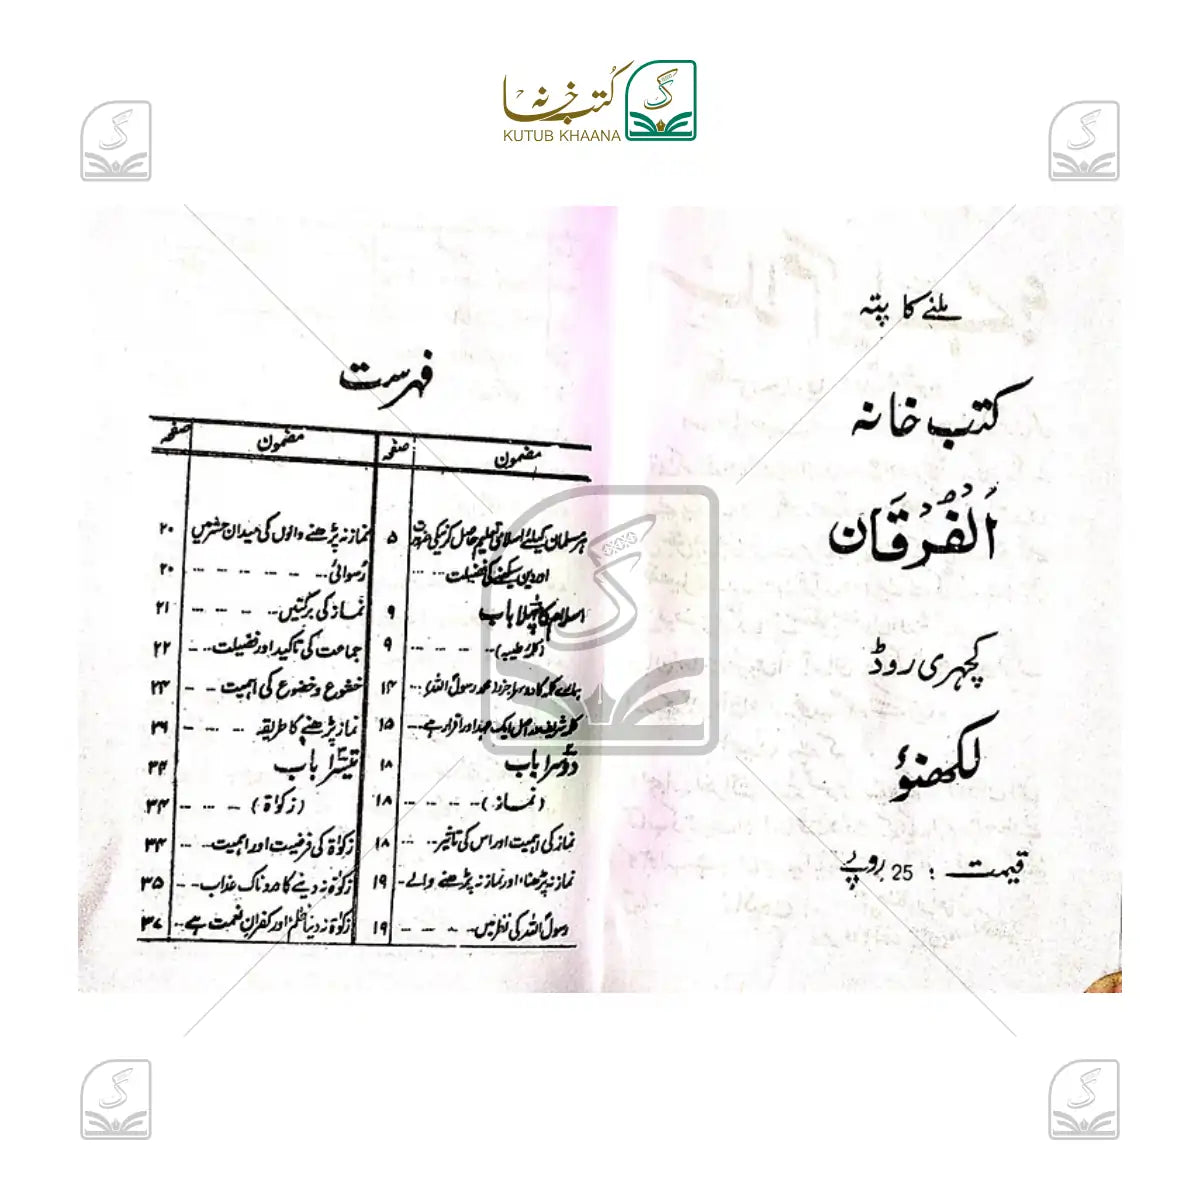 کتب خانہ
KUTUB KHAANA
ملنے کا پتہ
کتب خانہ
الفُرقَان
کچہری روڈ
لکھنؤ
قیمت : 25 روپے
فہرست
مضمون صفحہ
ہر مسلمان کیلئے اسلامی تعلیم حاصل کرنیکی ضرورت ۵
اور دین سیکھنے کی فضیلت ...
اسلام کا پہلا باب ۹
(کلمہ طیبہ) ۹
ہمارے کلمہ کا دوسرا جزو محمد رسول اللہ ... ۱۴
کلمہ شریف دراصل ایک عہد اور اقرار ہے ... ۱۵
دوسرا باب ۱۸
(نماز) ۱۸
نماز کی اہمیت اور اس کی تاثیر ... ۱۸
نماز نہ پڑھنا، اور نماز نہ پڑھنے والے - ۱۹
رسول اللہ کی نظر میں ... ۱۹
مضمون صفحہ
نماز نہ پڑھنے والوں کی میدان حشر میں ۲۰
رسوائی ... ۲۰
نماز کی برکتیں ... ۲۱
جماعت کی تاکید اور فضیلت ... ۲۲
خشوع و خضوع کی اہمیت - - ۲۳
نماز پڑھنے کا طریقہ ...
تیسرا باب ۳۴
(زکوٰۃ) ۳۴
زکوٰۃ کی فرضیت اور اہمیت ... ۳۴
زکوٰۃ نہ دینے کا دردناک عذاب - - ۳۵
زکوٰۃ نہ دینا ظلم اور کفران نعمت ہے ... ۳۷